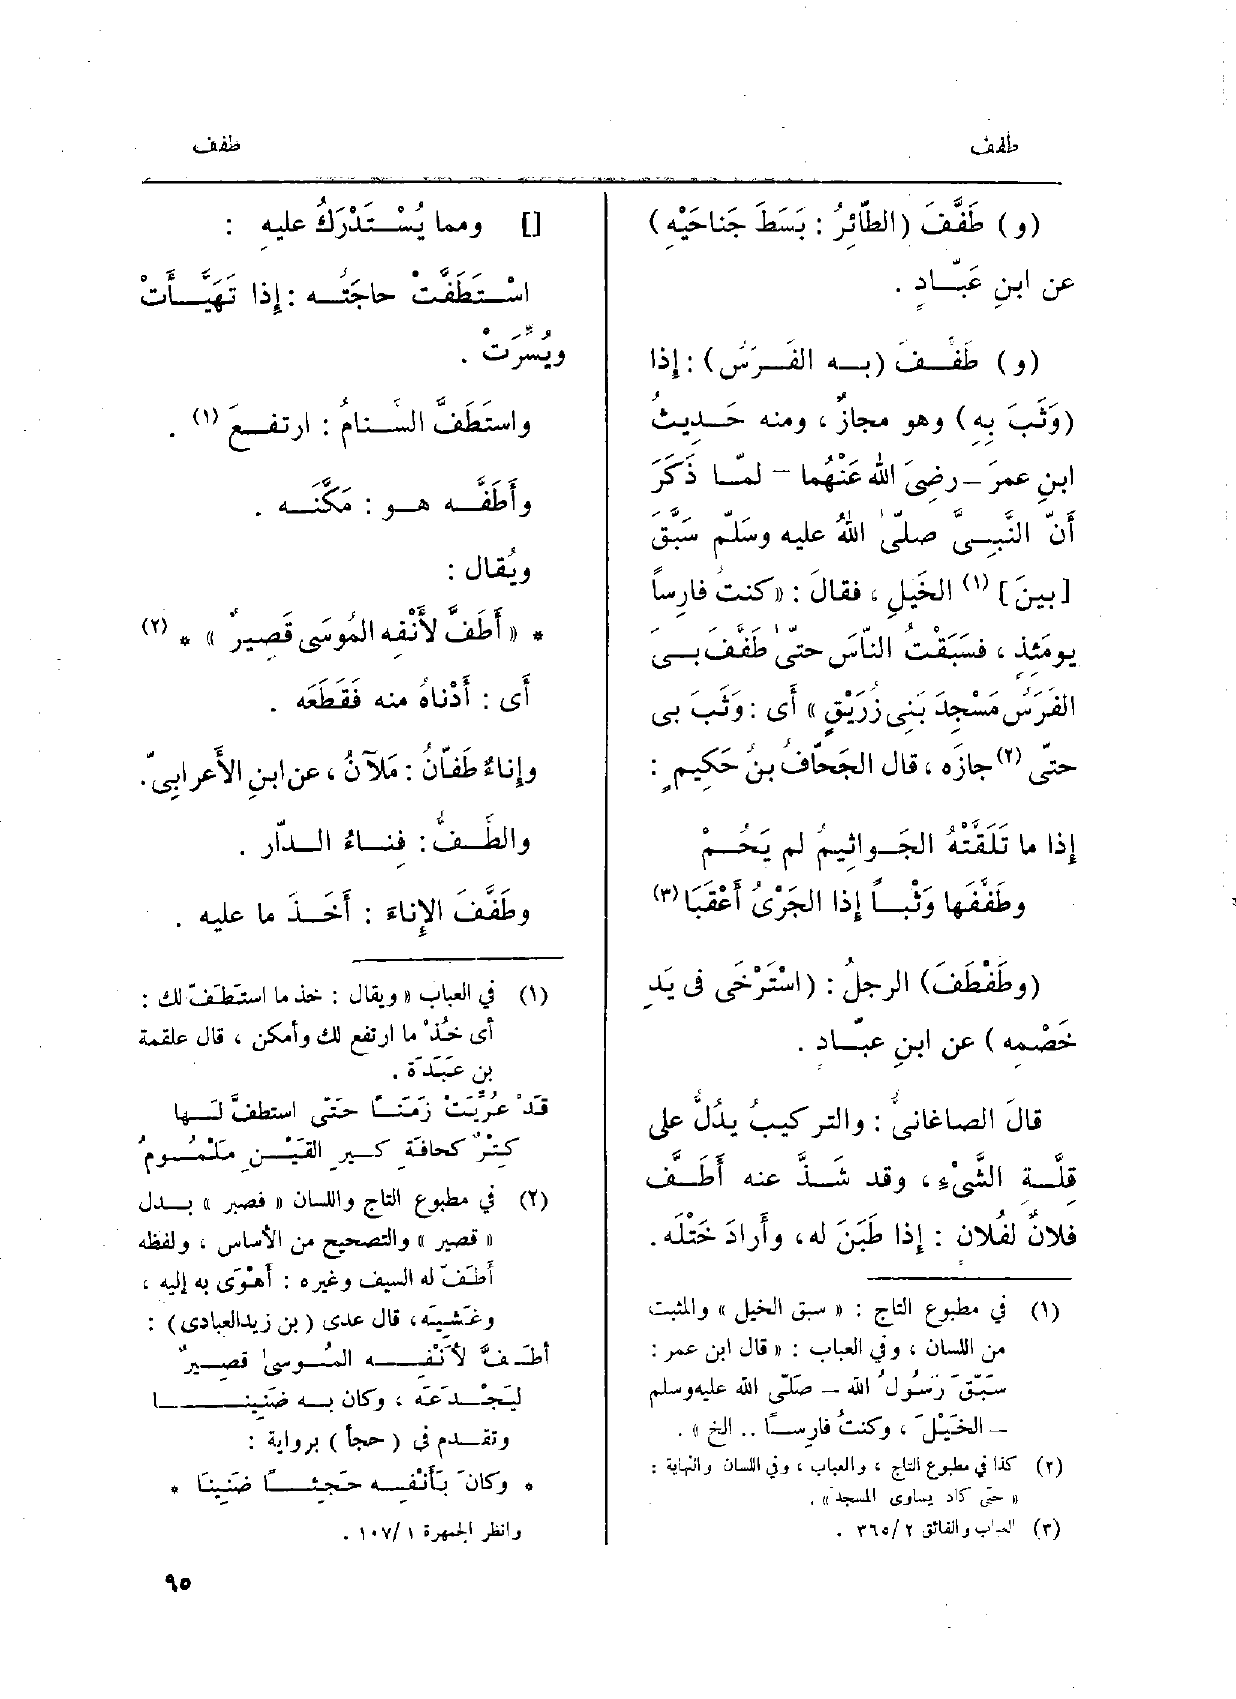 طفف
طفف
(و) طَفَّفَ (الطّائِرُ : بَسَطَ جَناحَيْهِ)
عن ابنِ عَبّادٍ .
(و) طَفَّفَ (بِه الفَرَسُ) : إذا
(وَثَبَ بِهِ) وهو مجازٌ ، ومنه حَدِيثُ
ابنِ عمرَ – رضِىَ اللهُ عَنْهُما – لمّا ذَكَرَ
أَنّ النَّبِىَّ صلّى اللهُ عليه وسَلّم سَبَّقَ
[بينَ] (١) الخَيْلِ ، فقالَ : «كنتُ فارِساً
يومَئِذٍ ، فسَبَقْتُ النّاسَ حتّى طَفَّفَ بِىَ
الفَرَسُ مَسْجِدَ بَنِى زُرَيْقٍ» أى : وَثَبَ بى
حتّى (٢) جازَه ، قال الجَحّافُ بنُ حَكِيمٍ :
إذا ما تَلَقَّتْهُ الجَراثِيمُ لم يَخِمْ
وطَفَّفَها وَثْباً إذا الجَرْىُ أَعْقَبَا (٣)
(وطَفْطَفَ) الرجلُ : (اسْتَرْخَى فى يَدِ
خَصْمِه) عن ابنِ عبّادٍ .
قالَ الصاغانىُّ : والتركيبُ يدُلُّ على
قِلَّةِ الشَّىْءِ ، وقد شَذَّ عنه أَطَفَّ
فلانٌ لفُلان : إذا طَبَنَ له ، وأَرادَ خَتْلَه .
(١) في مطبوع التاج : «سبق الخيل» والمثبت
من اللسان ، وفي العباب : «قال ابن عمر :
سَبَّقَ رَسُولُ الله – صَلّى الله عليه وسلم
– الخَيْلَ ، وكنتُ فارِساً .. الخ» .
(٢) كذا في مطبوع التاج ، والعباب ، وفي اللسان والنهاية :
«حتى كاد يساوى المسجد» .
(٣) العباب والفائق ٢/ ٣٦٥ .
[] ومما يُسْتَدْرَكُ عليهِ :
اسْتَطَفَّتْ حاجَتُه : إذا تَهَيَّأَتْ
ويُسِّرَتْ .
واستَطَفَّ السَّنامُ : ارتفعَ (١) .
وأَطَفَّه هو : مَكَّنَه .
ويُقال :
* «أَطَفَّ لأَنْفِه المُوسَى قَصِيرٌ» * (٢)
أَى : أَدْناهُ منه فَقَطَعَه .
وإِناءٌ طَفّانُ : مَلآنُ ، عن ابنِ الأَعرابِىّ.
والطَّفُّ : فِناءُ الدّار .
وطَفَّفَ الإِناءَ : أَخَذَ ما عليه .
(١) في العباب «ويقال : خذ ما استَطَفّ لك :
أى خُذْ ما ارتفع لك وأمكن ، قال علقمة
بن عَبَدَة .
قَدْ عُرِّيَتْ زَمَناً حَتّى استطفَّ لَها
كِتْرٌ كحافَةِ كِيرِ القَيْنِ مَلْمُومُ
(٢) في مطبوع التاج واللسان «فصير» بدل
«قصير» والتصحيح من الأساس ، ولفظه
أطَفّ له السيف وغيره : أهْوَى به إليه ،
وغَشِيَه، قال عدى (بن زيدالعبادى) :
أطَفَّ لأنْفِه المُوسىٰ قصيرٌ
لِيَجْدَعَه ، وكان به ضَنِينا
وتقدم فى (حجأ) برواية :
* وكانَ بأَنْفِه حَجِئاً ضَنِينَا *
وانظر الجمهرة ١/ ١٠٧ .
٩٥